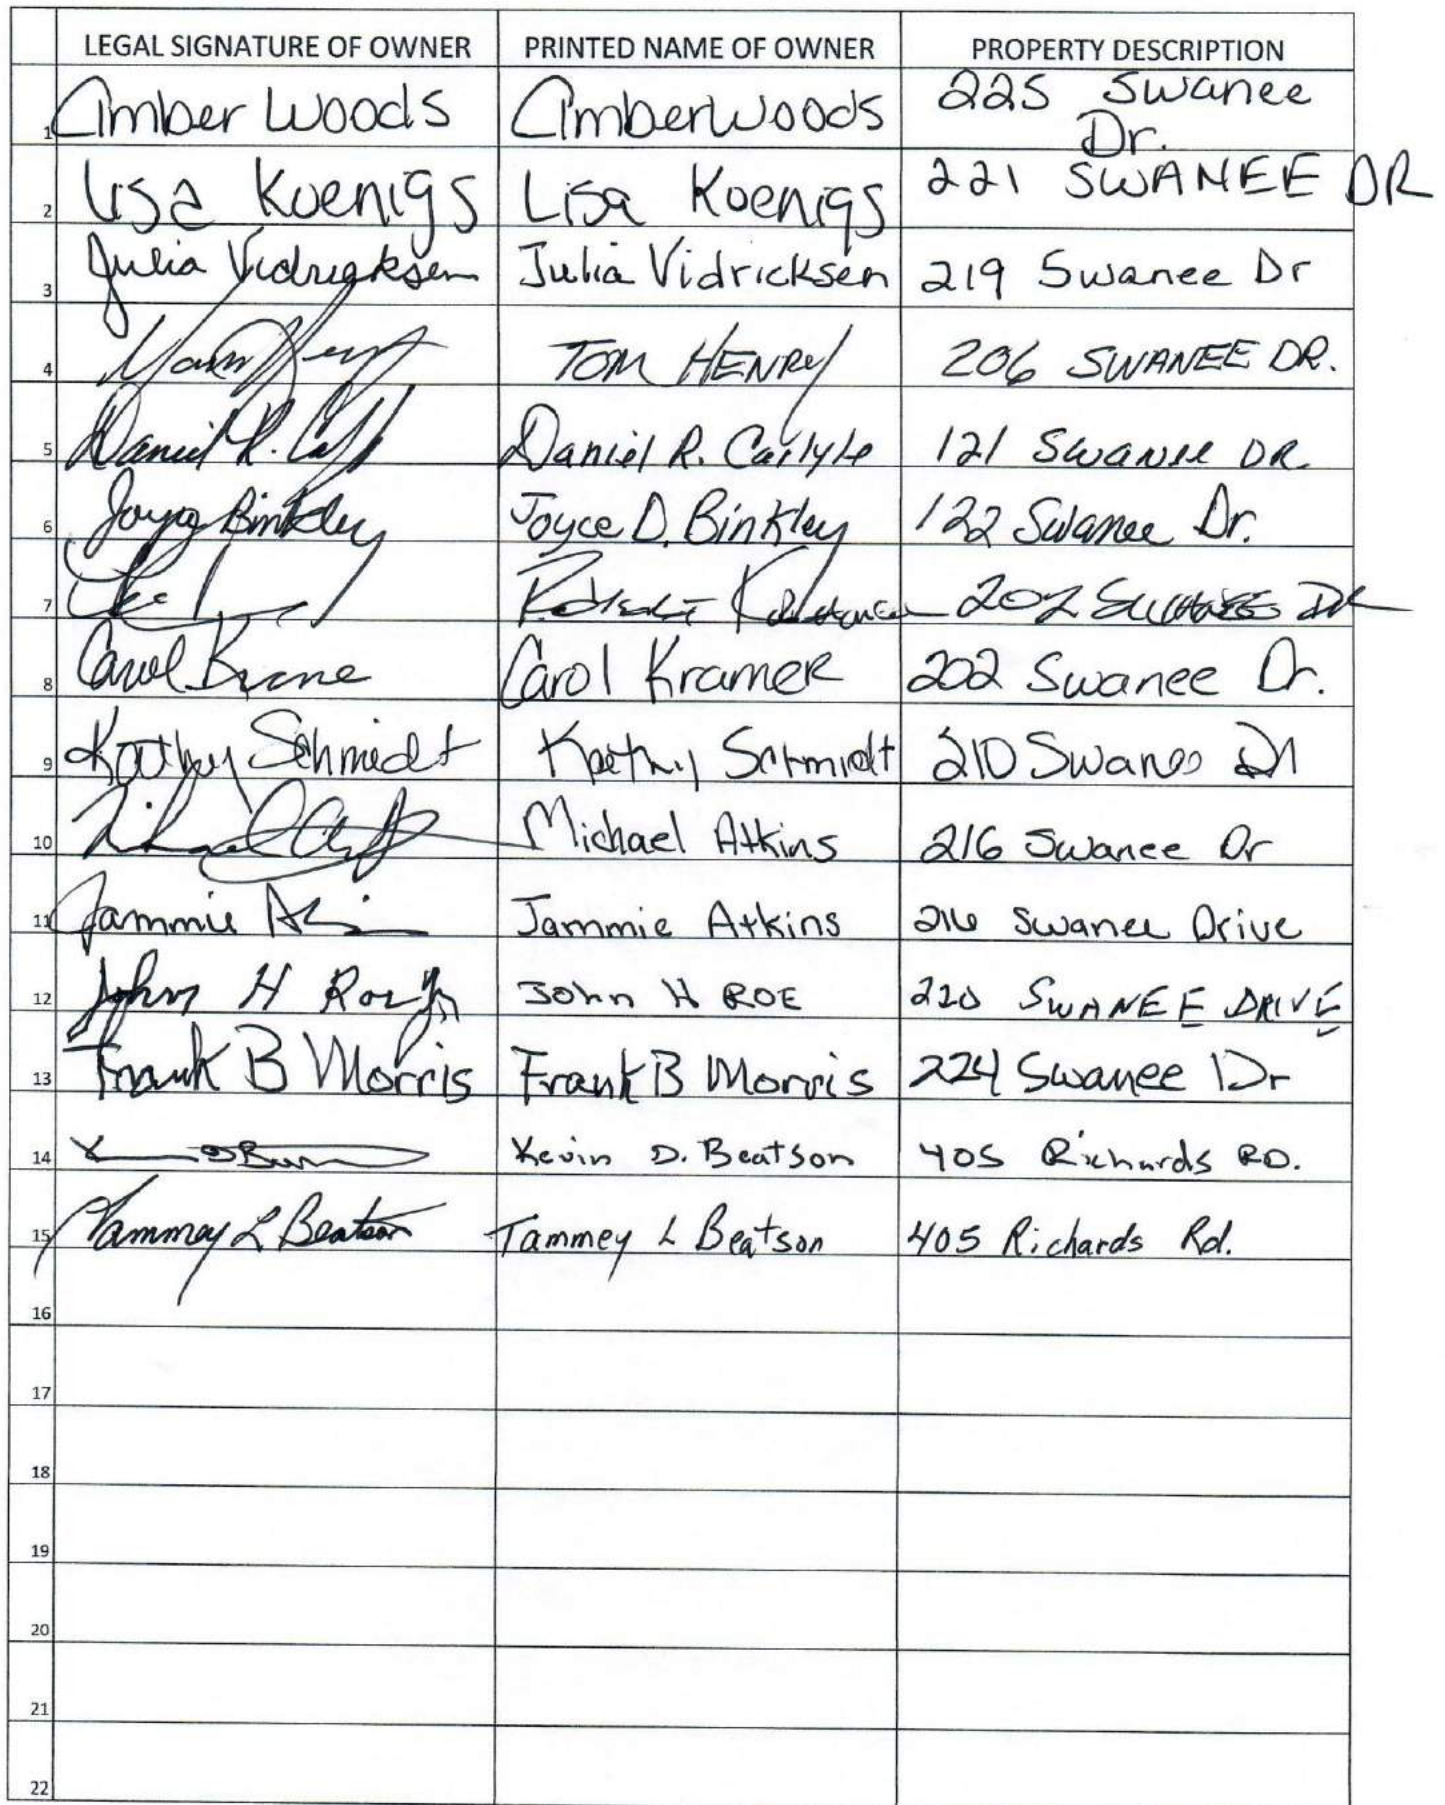 LEGAL SIGNATURE OF OWNER PRINTED NAME OF OWNER PROPERTY DESCRIPTION
1 Amber Woods Amber Woods 225 Swanee
Dr.
2 Lisa Koenigs Lisa Koenigs 221 SWANEE DR
3 Julia Vidricksen Julia Vidricksen 219 Swanee Dr
4 TOM HENRY 206 SWANEE DR.
5 Daniel R. Daniel R. Carlyle 121 Swanee DR
6 Joyce Binkley Joyce D. Binkley 122 Swanee Dr.
7 202 Swanee DR
8 Carol Carol Kramer 202 Swanee Dr.
9 Kathy Schmidt Kathy Schmidt 210 Swanee Dr
10 Michael Atkins 216 Swanee Dr
11 Jammie Jammie Atkins 216 Swanee Drive
12 John H Roe Jr John H ROE 220 SWANEE DRIVE
13 Frank B Morris Frank B Morris 224 Swanee Dr
14 Kevin D. Beatson 405 Richards RD.
15 Tammey L Beatson Tammey L Beatson 405 Richards Rd.
16
17
18
19
20
21
22